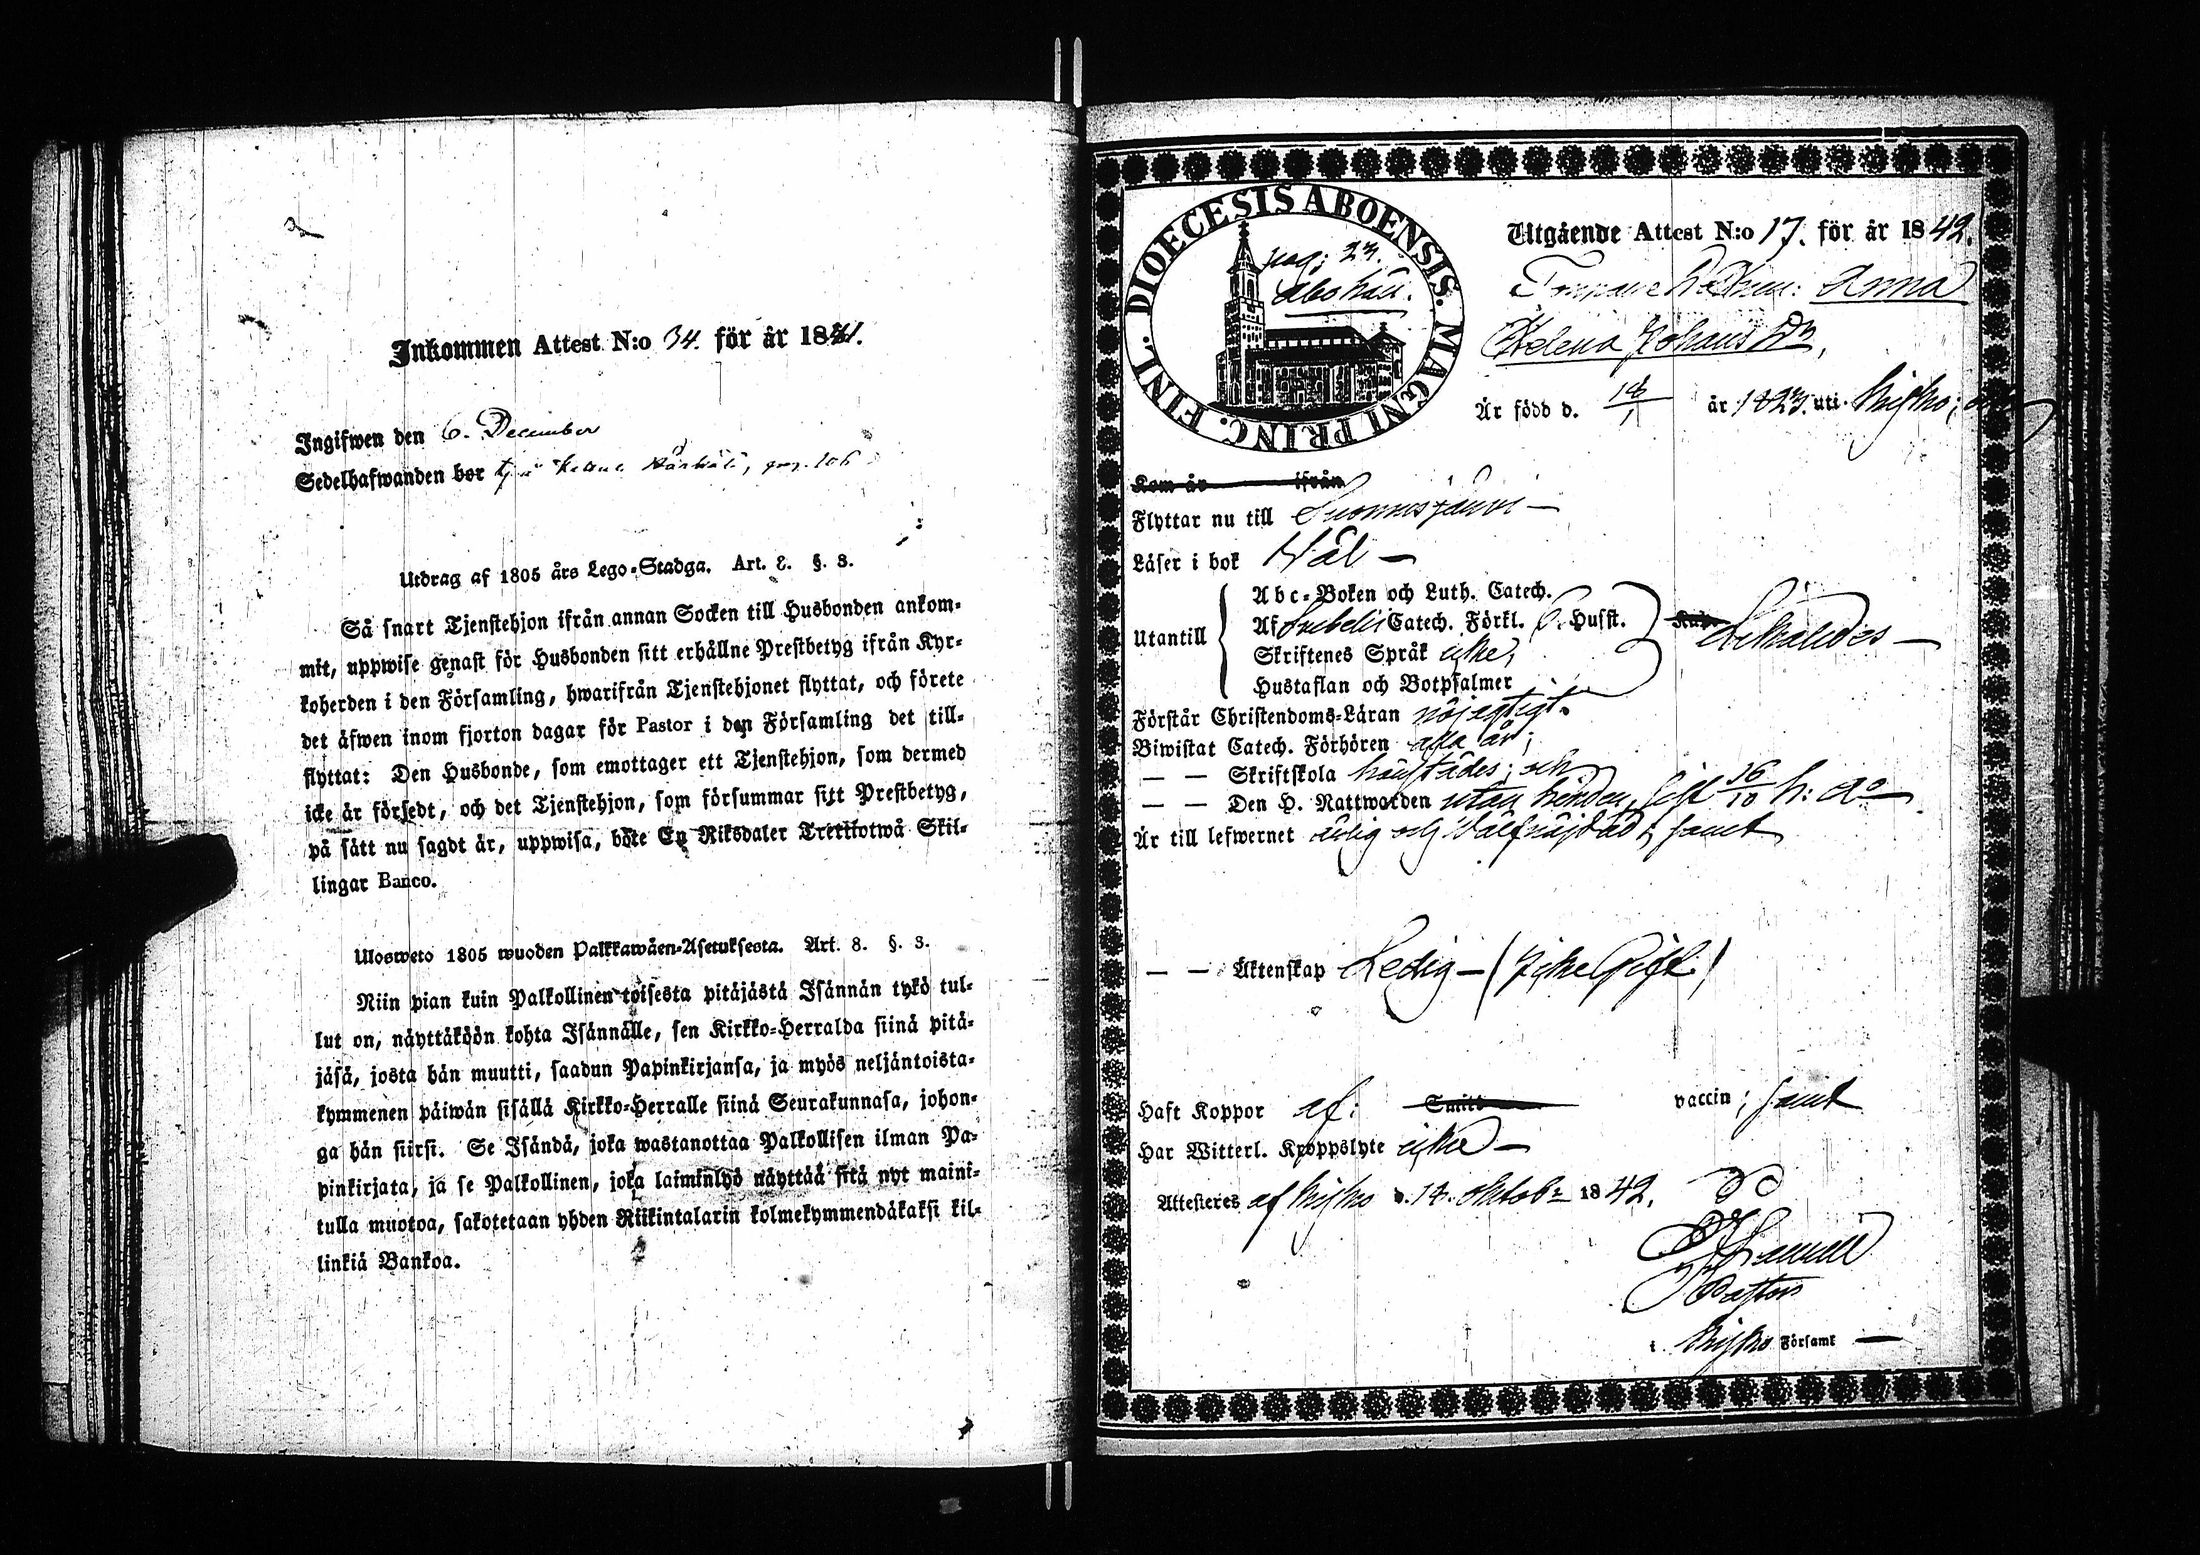 Inkommen Attest N:o 34. för år 1841.
Ingifwen den 6. December
Sedelhafwanden bor
Utdrag af 1805 års Lego-Stadga. Art. 8. §. 3.
Så snart Tjenstehjon ifrån annan Socken till Husbonden ankom-
mit, uppwise genast för Husbonden sitt erhållne Prestbetyg ifrån Kyr-
koherden i den Församling, hwarifrån Tjenstehjonet flyttat, och förete
det äfwen inom fjorton dagar för Pastor i den Församling det till-
flyttat: Den Husbonde, som emottager ett Tjenstehjon, som dermed
icke är försedt, och det Tjenstehjon, som försummar sitt Prestbetyg,
på sätt nu sagdt är, uppwisa, böte En Riksdaler Trettiotwå Skil-
lingar Banco.
Ulosweto 1805 wuoden Palkkawäen-Asetuksesta. Art. 8. §. 3.
Niin pian kuin Palkollinen toisesta pitäjästä Isännän tykö tul-
lut on, näyttäköön kohta Isännälle, sen Kirkko-Herralda siinä pitä-
jäsä, josta hän muutti, saadun Papinkirjansa, ja myös neljäntoista-
kymmenen päiwän sisällä Kirkko-Herralle siinä Seurakunnasa, johon-
ga hän siirsi. Se Isändä, joka wastanottaa Palkollisen ilman Pa-
pinkirjata, ja se Palkollinen, joka laiminlyö näyttää sitä nyt maini-
tulla muotoa, sakotetaan yhden Riikintalarin kolmekymmendäkaksi kil-
linkiä Bankoa.
DIOECESIS ABOENSIS. MAGNI PRINC. FINL.
pag: 23.
Utgående Attest N:o 17. för år 1842.
Anna
Helena Johans Dr,
Är född d. 18/1 år 1823. uti Kisko;
Kom år ifrån
Flyttar nu till Suomusjärvi —
Läser i bok Wäl —
Utantill
Abc-Boken och Luth. Catech.
Af Svebelii Catech. Förkl. Husst.
Skriftenes Språk icke,
Hustaflan och Botpsalmer
Förstår Christendoms-Läran nöjagtigt.
Biwistat Catech. Förhören alla år;
— — Skriftskola och
— — Den H. Nattwarden utan hinder, sist 16/10 h: ao
Är till lefwernet ärlig och wälfräjdad, samt
— — Äktenskap Ledig — (icke Gift)
Haft Koppor af: Smitt vaccin; samt
Har Witterl. Kroppslyte icke —
Attesteras af Kisko d. 18. Oktobr 1842.
Pastor
i Kisko Församl —